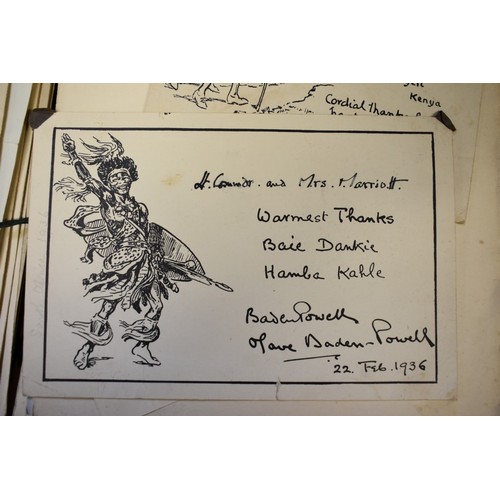 Kenya
Cordial Thanks
H. Commr. and Mrs. Marriott.
Warmest Thanks
Baie Dankie
Hamba Kahle
Baden Powell
Olave Baden-Powell
22. Feb. 1936